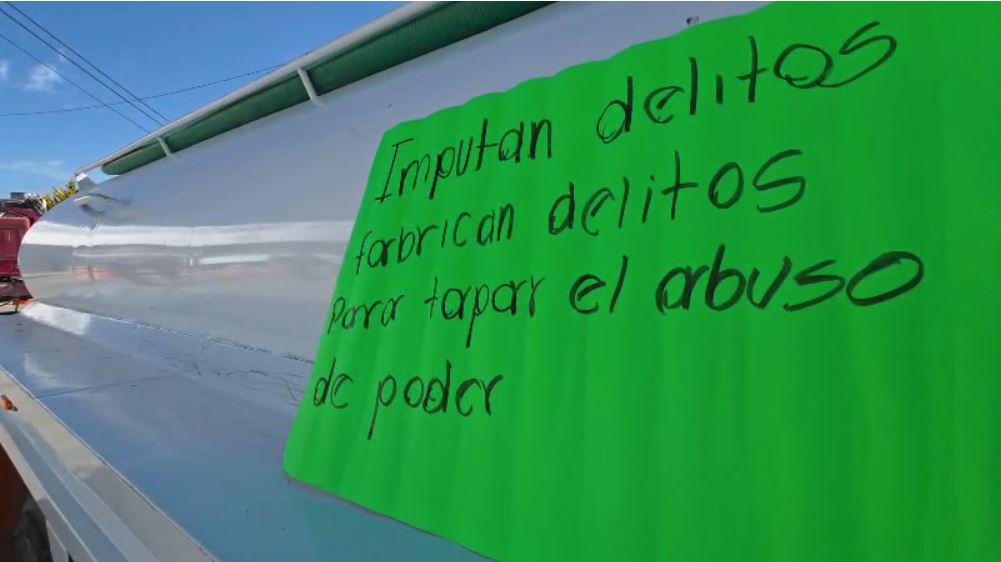 Imputan delitos
fabrican delitos
Para tapar el abuso
de poder